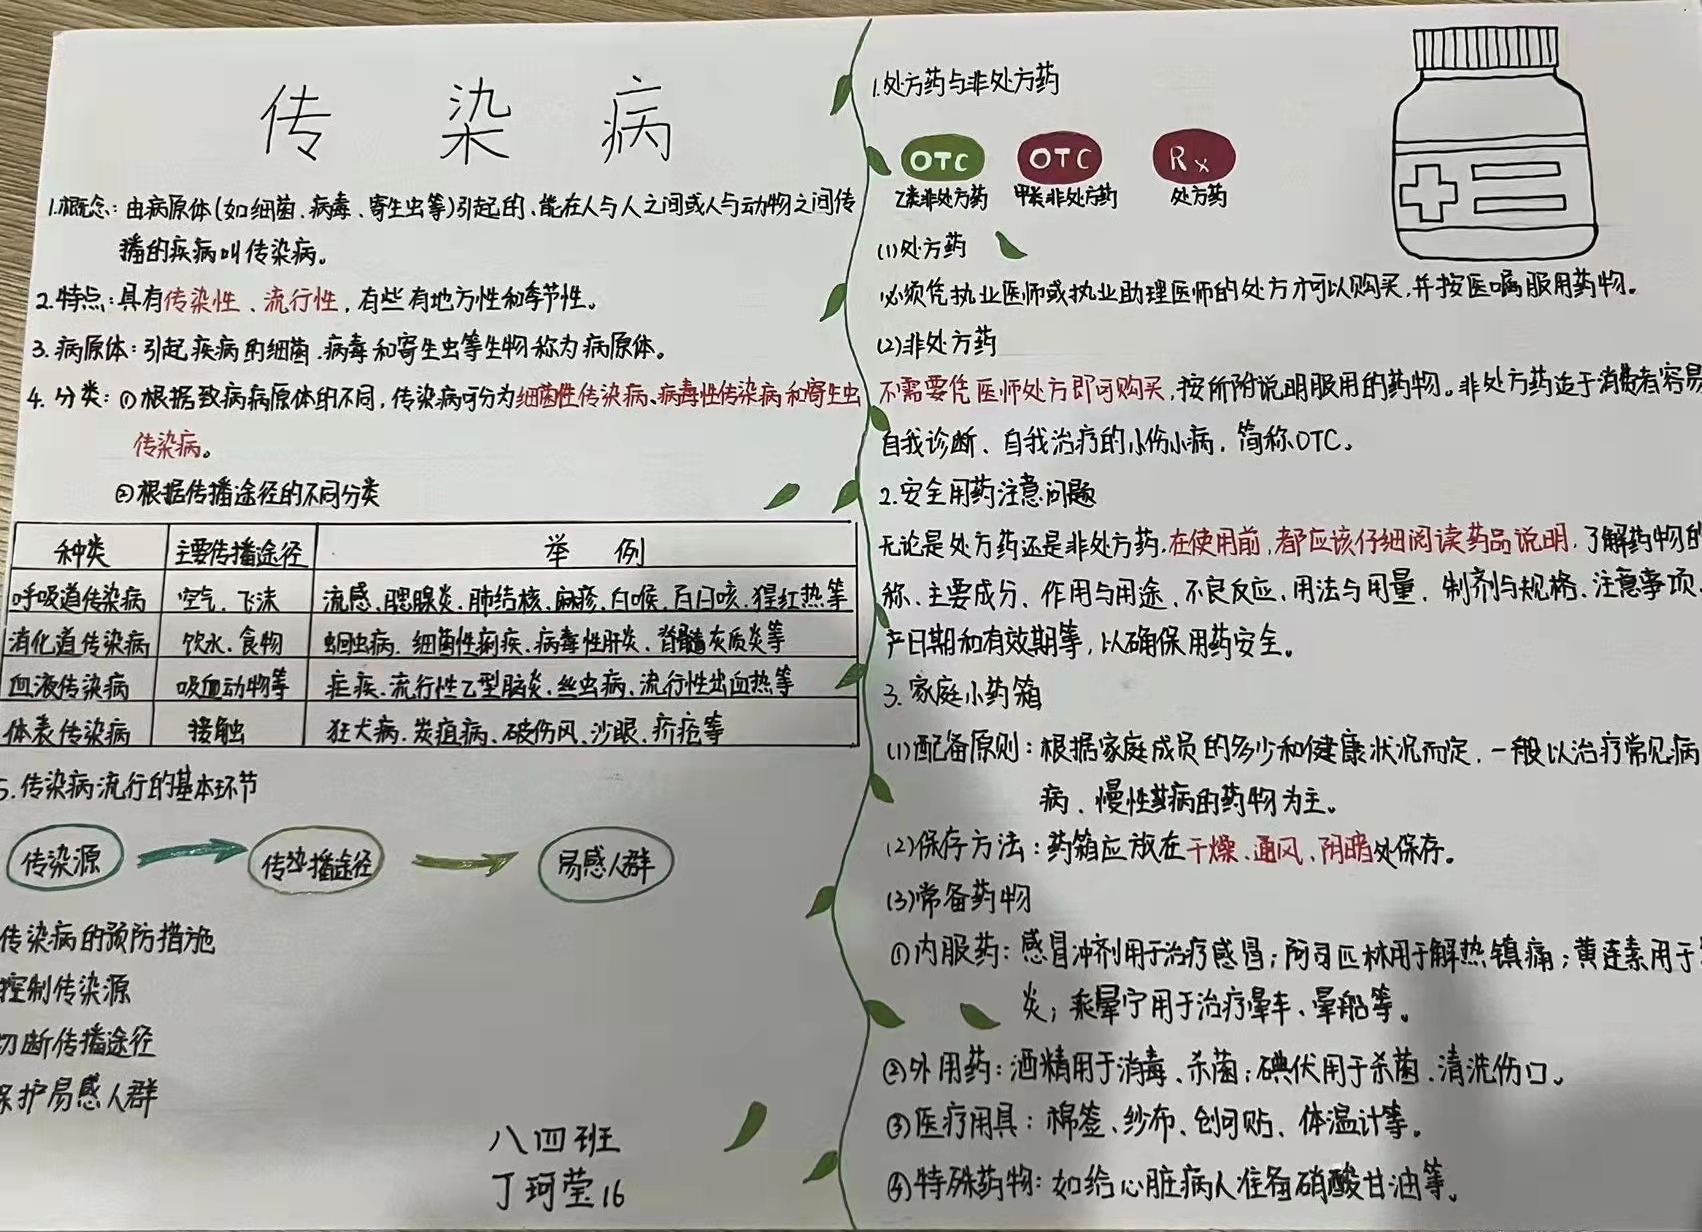 传 染 病
1.概念：由病原体(如细菌、病毒、寄生虫等)引起的、能在人与人之间或人与动物之间传
播的疾病叫传染病。
2.特点：具有传染性、流行性，有些有地方性和季节性。
3.病原体：引起疾病的细菌、病毒和寄生虫等生物称为病原体。
4.分类：①根据致病病原体的不同，传染病可分为细菌性传染病、病毒性传染病和寄生虫
传染病。
②根据传播途径的不同分类
种类 主要传播途径 举 例
呼吸道传染病 空气、飞沫 流感、腮腺炎、肺结核、麻疹、白喉、百日咳、猩红热等
消化道传染病 饮水、食物 蛔虫病、细菌性痢疾、病毒性肝炎、脊髓灰质炎等
血液传染病 吸血动物等 疟疾、流行性乙型脑炎、丝虫病、流行性出血热等
体表传染病 接触 狂犬病、炭疽病、破伤风、沙眼、疥疮等
5.传染病流行的基本环节
传染源 传染播途径 易感人群
传染病的预防措施
控制传染源
切断传播途径
保护易感人群
八四班
丁珂莹16
1.处方药与非处方药
OTC OTC Rx
乙类非处方药 甲类非处方药 处方药
(1)处方药
必须凭执业医师或执业助理医师的处方才可以购买,并按医嘱服用药物。
(2)非处方药
不需要凭医师处方即可购买,按所附说明服用的药物。非处方药适于消费者容易
自我诊断、自我治疗的小伤小病，简称OTC。
2.安全用药注意问题
无论是处方药还是非处方药,在使用前,都应该仔细阅读药品说明,了解药物的
称、主要成分、作用与用途、不良反应、用法与用量、制剂与规格、注意事项、
产日期和有效期等，以确保用药安全。
3.家庭小药箱
(1)配备原则：根据家庭成员的多少和健康状况而定，一般以治疗常见病
病、慢性疾病的药物为主。
(2)保存方法：药箱应放在干燥、通风、阴暗处保存。
(3)常备药物
①内服药：感冒冲剂用于治疗感冒；阿司匹林用于解热镇痛；黄连素用于
炎；乘晕宁用于治疗晕车、晕船等。
②外用药：酒精用于消毒、杀菌；碘伏用于杀菌、清洗伤口。
③医疗用具：棉签、纱布、创可贴、体温计等。
④特殊药物：如给心脏病人准备硝酸甘油等。